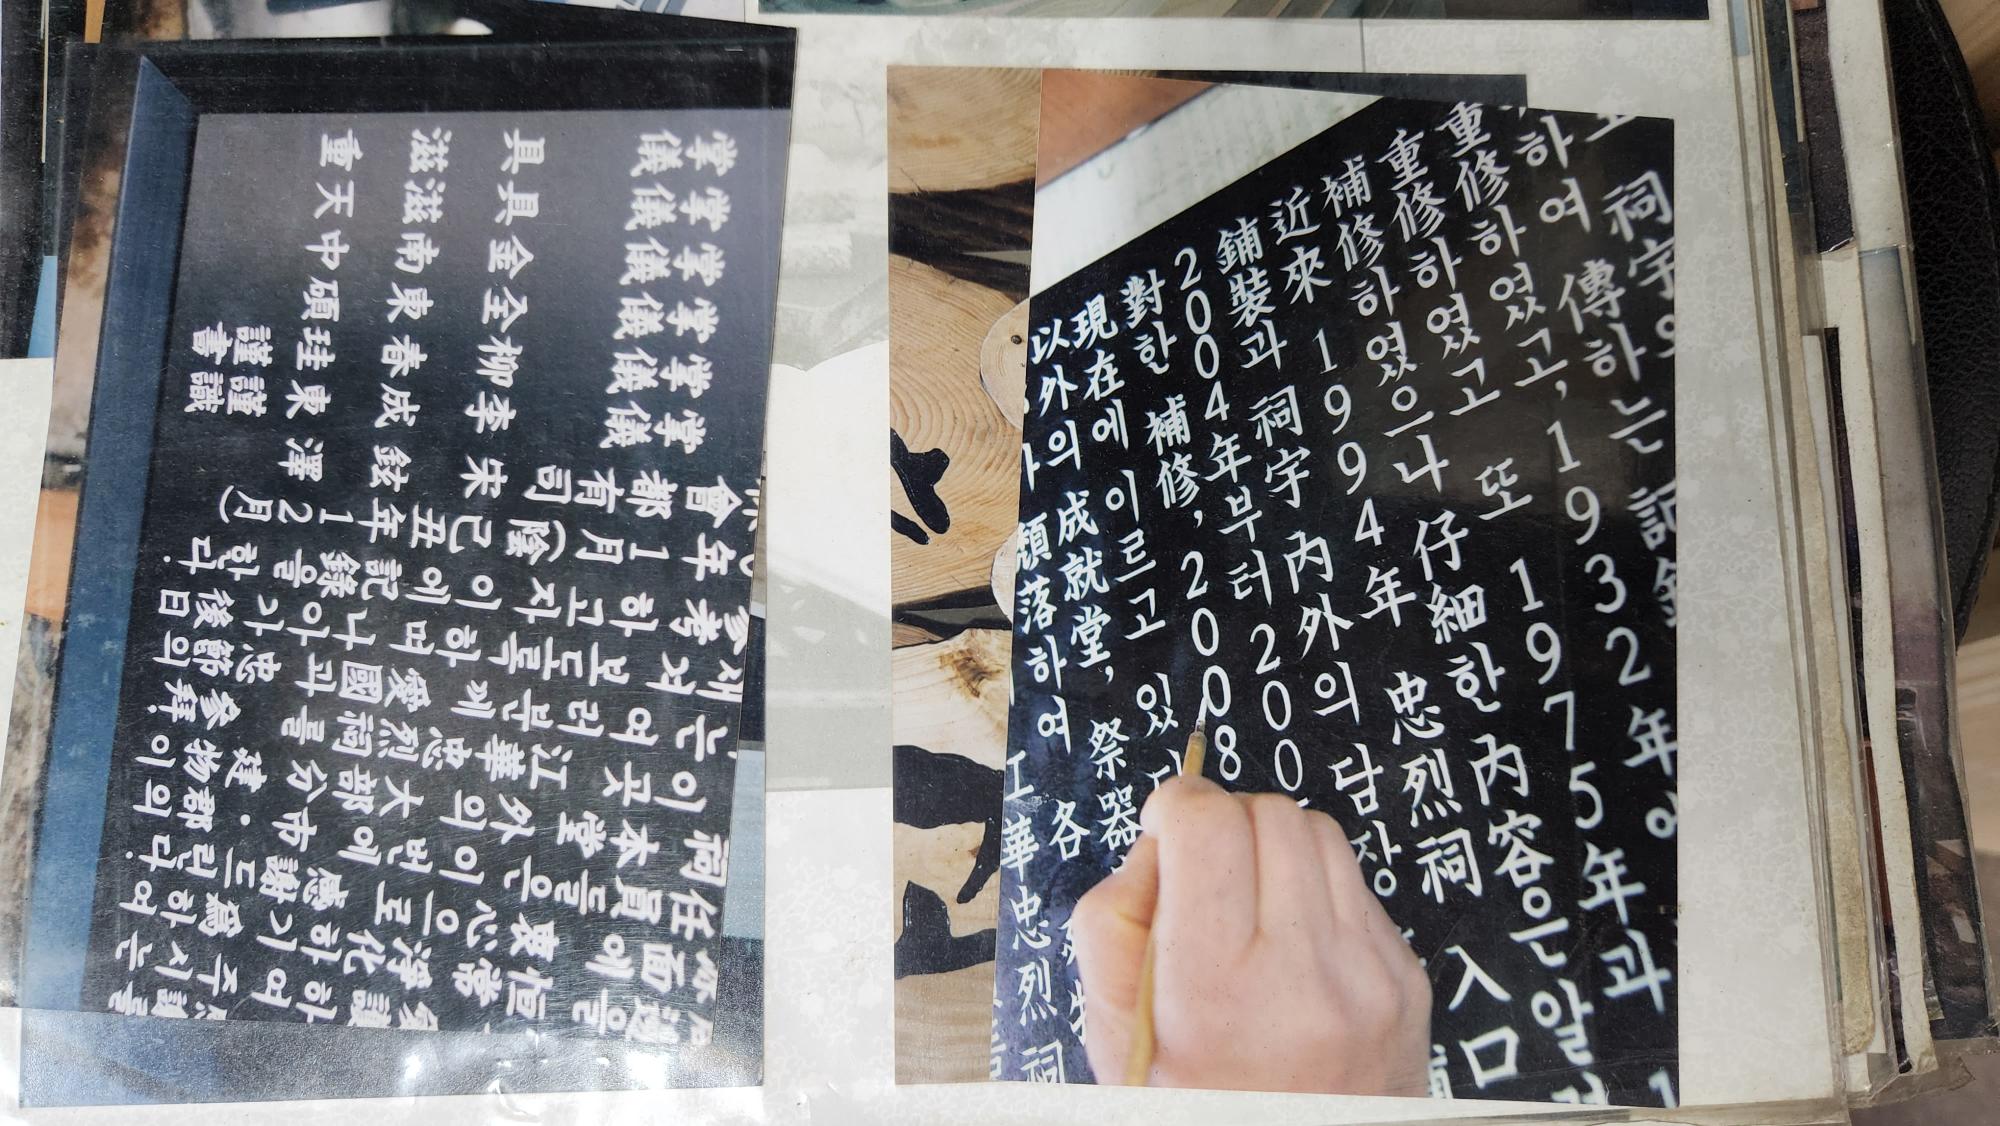 祠宇의
하여 傳하는 記錄
重修하였고, 1932年에
重修하였고 또 1975年과
補修하였으나 仔細한 內容은 알
近來 1994年 忠烈祠 入口
鋪裝과 祠宇 內外의 담장
2004年부터 200
對한 補修, 2008
現在에 이르고 있다
以外의 成就堂, 祭器
頹落하여 各
江華忠烈祠
하여 주시는
을 恒常 淨化하기 爲하여
面에 衷心으로 感謝드린다.
任員들은 이번에 市·郡의
祠 本堂 外의 大部分 建物이
이곳 江華忠烈祠를 參拜
는 여러분께 愛國과 忠節의
새겨 보도록 하며 나아가 後日
參考하고자 이에 記錄을 한다.
年 1月 (陰 己丑年 12月)
會 都有司 宋鉉澤
掌儀 李成東 謹識
掌儀 柳春珪 謹書
掌儀 全東碩
掌儀 金南中
掌儀 具滋天
掌儀 具滋重